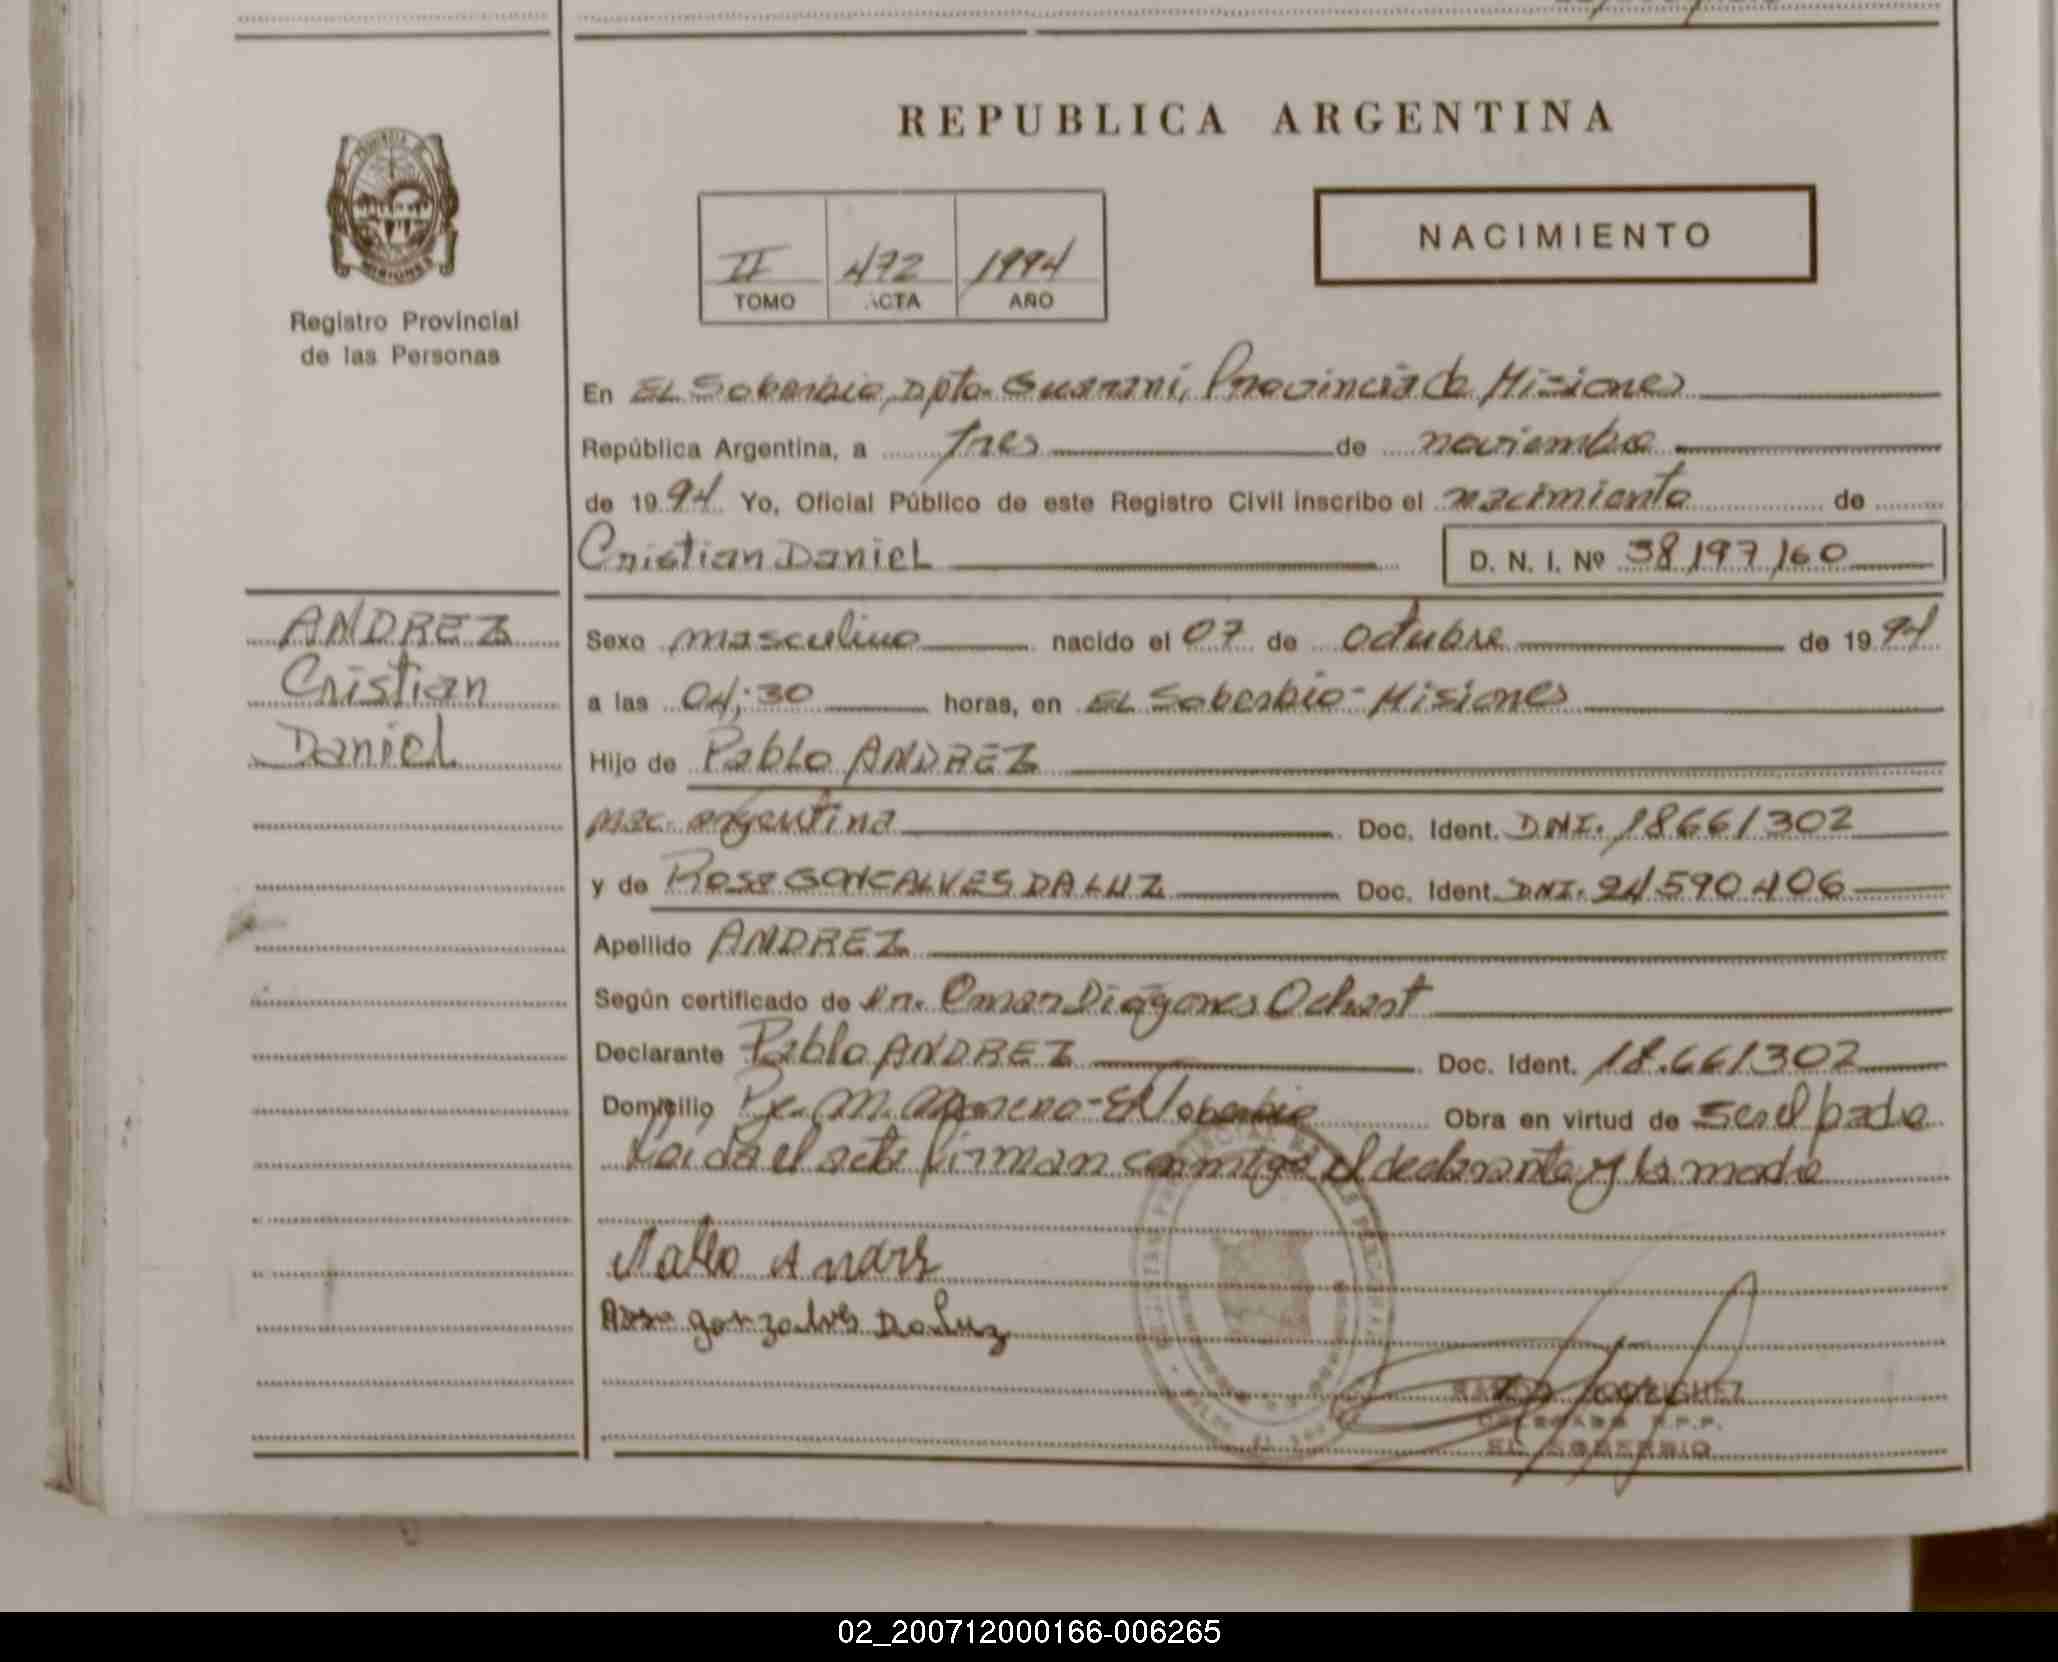 REPUBLICA ARGENTINA
PROVINCIA DE
MISIONES
Registro Provincial
de las Personas
II 472 1994
TOMO ACTA AÑO
NACIMIENTO
En EL Soberbio, Dpto. Guaraní, Provincia de Misiones
República Argentina, a tres de noviembre
de 1994 Yo, Oficial Público de este Registro Civil inscribo el nacimiento de
Cristian Daniel D. N. I. Nº 38197160
ANDREZ
Cristian
Daniel
Sexo masculino nacido el 07 de octubre de 1994
a las 04:30 horas, en EL Soberbio - Misiones
Hijo de Pablo ANDREZ
nac. argentina Doc. Ident. DNI. 18661302
y de Rosa GONCALVES DA LUZ Doc. Ident. DNI. 24590406
Apellido ANDREZ
Según certificado de Dr. Omar Diógenes Ochast
Declarante Pablo ANDREZ Doc. Ident. 18.661302
Domicilio M. Moreno - El Soberbio Obra en virtud de ser el padre
Leida el acta firman conmigo el declarante y la madre
Pablo Andrez
Rosa gonzalves Da Luz
RAMON RODRIGUEZ
DELEGADO R.P.P.
EL SOBERBIO
02_200712000166-006265